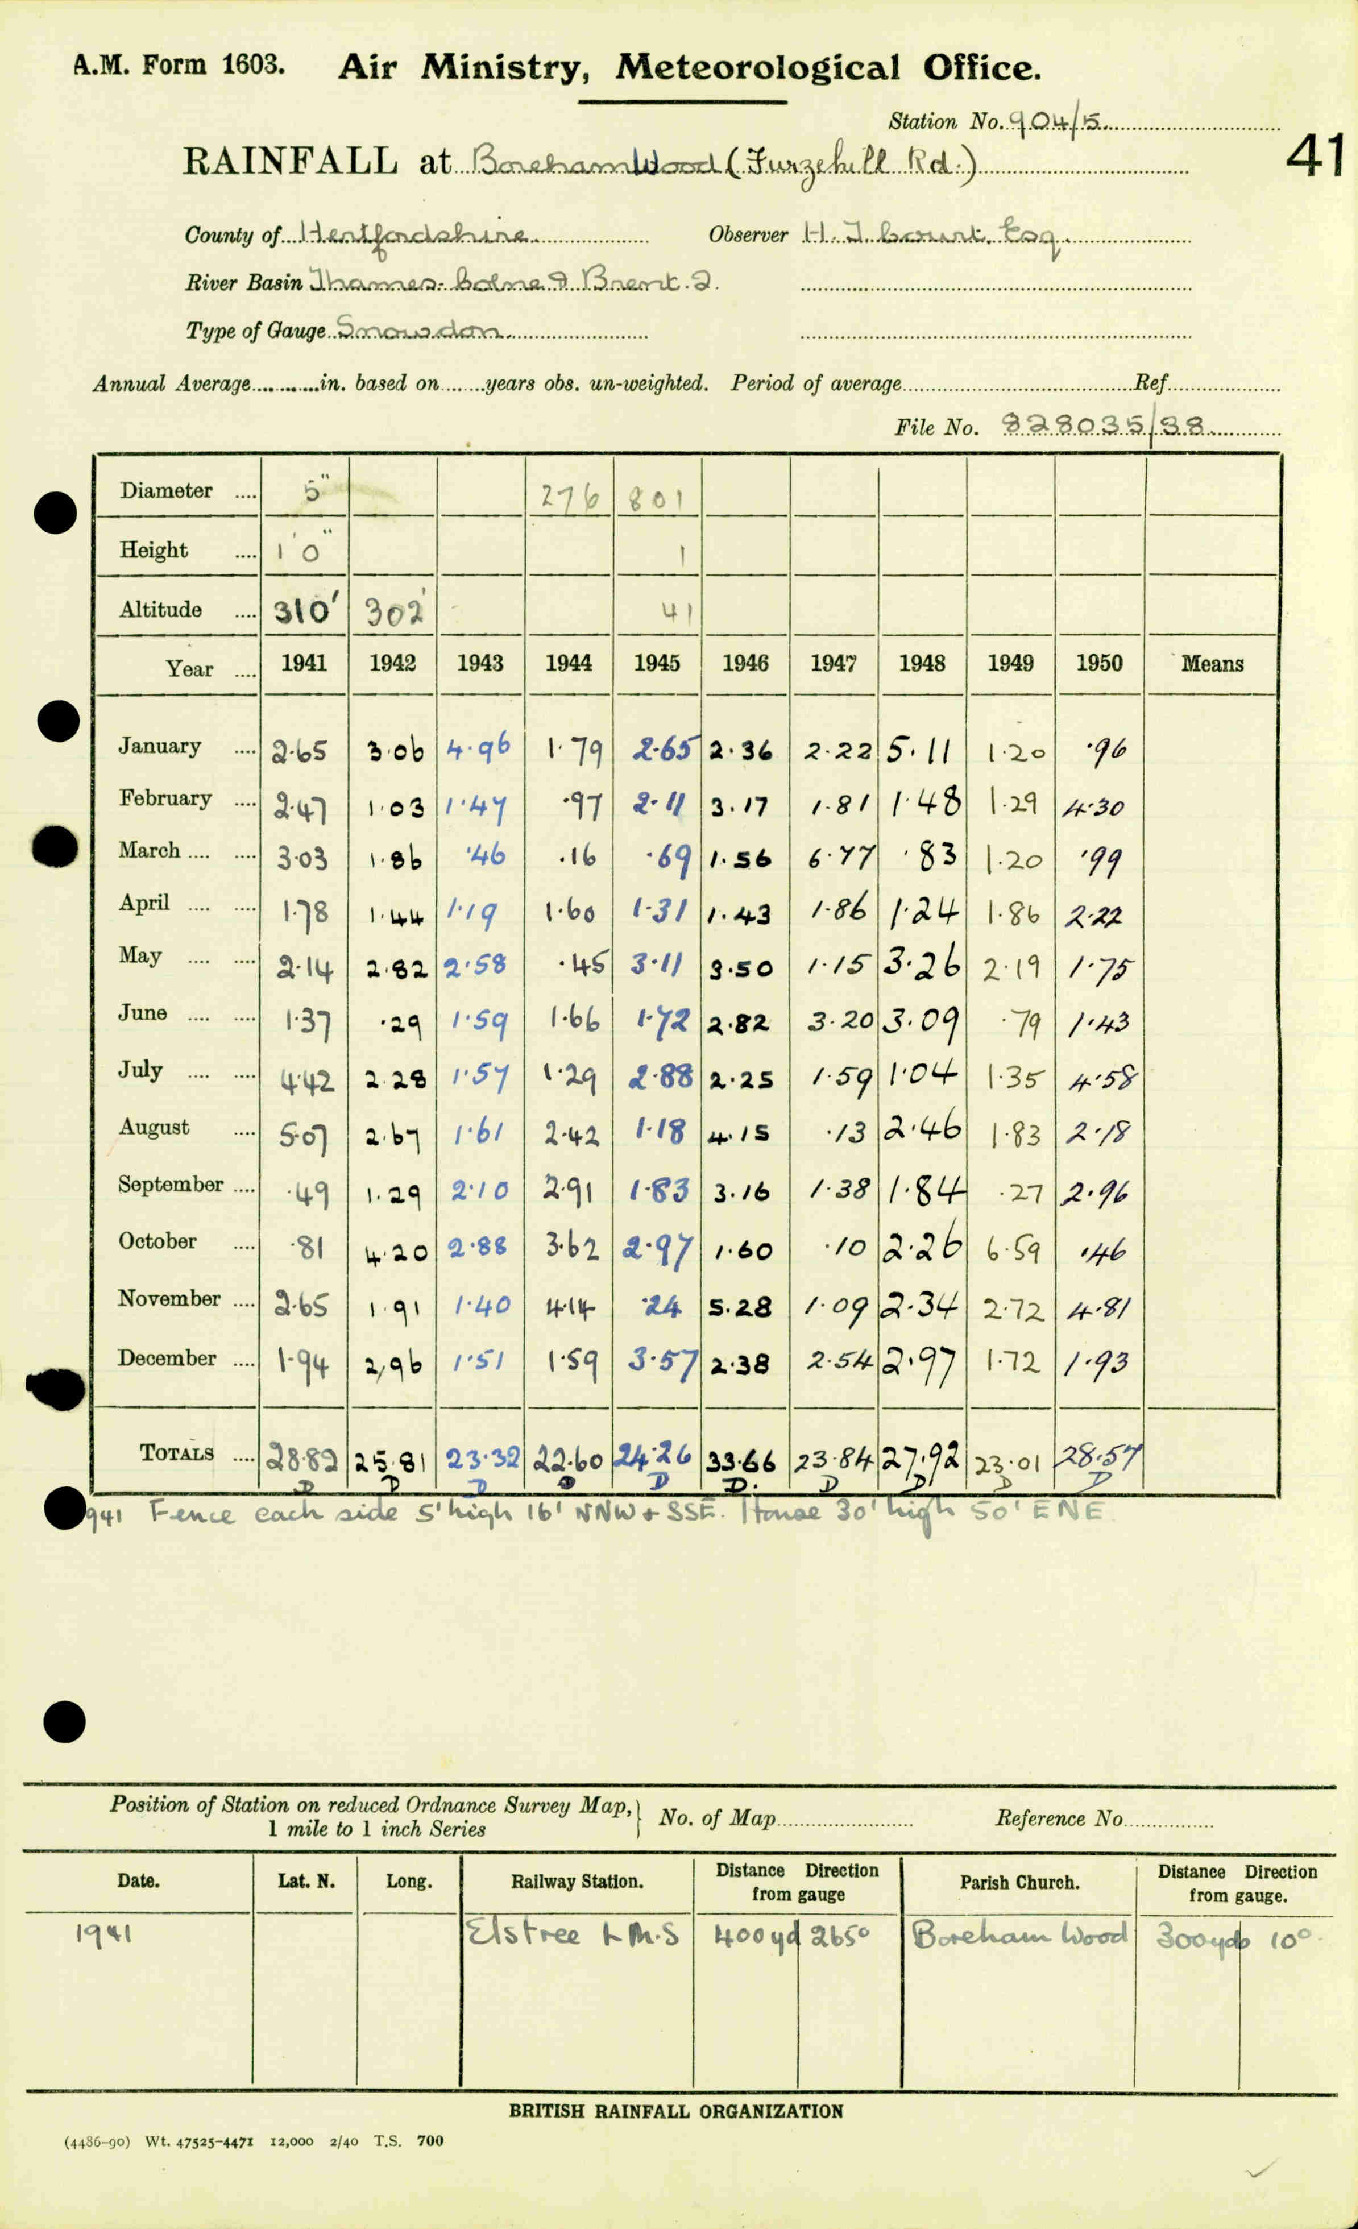 A.M. Form 1603. Air Ministry, Meteorological Office.
Station No. 904/5
41
RAINFALL at Boreham Wood (Furzehill Rd.)
County of Hertfordshire Observer H. J. Court, Esq.
River Basin Thames - Colne & Brent. 2.
Type of Gauge Snowdon
Annual Average in. based on years obs. un-weighted. Period of average Ref
File No. 828035/38
Diameter 5" 276 801
Height 1'0" 1
Altitude 310' 302' 41
Year 1941 1942 1943 1944 1945 1946 1947 1948 1949 1950 Means
January 2.65 3.06 4.96 1.79 2.65 2.36 2.22 5.11 1.20 .96
February 2.47 1.03 1.47 .97 2.11 3.17 1.81 1.48 1.29 4.30
March 3.03 1.86 .46 .16 .69 1.56 6.77 .83 1.20 .99
April 1.78 1.44 1.19 1.60 1.31 1.43 1.86 1.24 1.86 2.22
May 2.14 2.82 2.58 .45 3.11 3.50 1.15 3.26 2.19 1.75
June 1.37 .29 1.59 1.66 1.72 2.82 3.20 3.09 .79 1.43
July 4.42 2.28 1.57 1.29 2.88 2.25 1.59 1.04 1.35 4.58
August 5.07 2.67 1.61 2.42 1.18 4.15 .13 2.46 1.83 2.18
September .49 1.29 2.10 2.91 1.83 3.16 1.38 1.84 .27 2.96
October .81 4.20 2.88 3.62 2.97 1.60 .10 2.26 6.59 .46
November 2.65 1.91 1.40 4.14 .24 5.28 1.09 2.34 2.72 4.81
December 1.94 2.96 1.51 1.59 3.57 2.38 2.54 2.97 1.72 1.93
TOTALS 28.82 25.81 23.32 22.60 24.26 33.66 23.84 27.92 23.01 28.57
D D D D D D. D D D D
1941 Fence each side 5' high 16' NNW + SSE. House 30' high 50' ENE
Position of Station on reduced Ordnance Survey Map, No. of Map Reference No.
1 mile to 1 inch Series
Date. Lat. N. Long. Railway Station. Distance Direction from gauge Parish Church. Distance Direction from gauge.
1941 Elstree L.M.S 400 yd 265° Boreham Wood 300 yds 10°
BRITISH RAINFALL ORGANIZATION
(4486-90) Wt. 47525-4471 12,000 2/40 T.S. 700